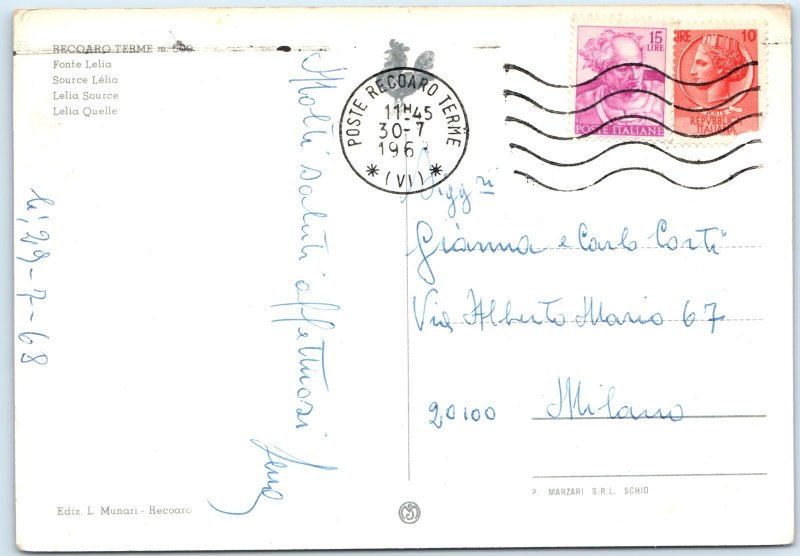 RECOARO TERME m. 500
Fonte Lelia
Source Lélia
Lelia Source
Lelia Quelle
Molti saluti affettuosi
lì, 29-7-68
Ediz. L. Munari - Recoaro
POSTE RECOARO TERME
11H45
30-7
196
* (VI) *
15
LIRE
POSTE ITALIANE
LIRE 10
POSTE
REPVBBLICA
ITALIANA
Sigg ri
Gianna e Carlo Corti
Via Alberto Mario 67
20100 Milano
P. MARZARI S.R.L. SCHIO